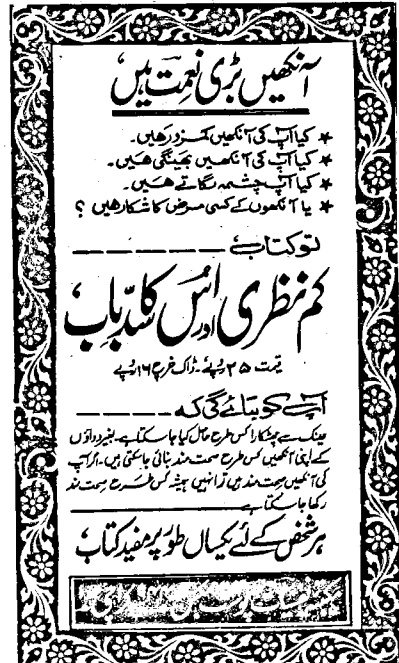 آنکھیں بڑی نعمت ہیں
★ کیا آپ کی آنکھیں کمزور ھیں۔
★ کیا آپ کی آنکھیں بھینگی ھیں۔
★ کیا آپ چشمہ لگاتے ھیں۔
★ یا آنکھوں کے کسی مرض کا شکار ھیں ؟
تو کتاب
کم نظری اور اُس کا سدِّباب
قیمت ۲۵ روپے۔ ڈاک خرچ ۱۶ روپے
آپ کو بتائے گی کہ
عینک سے چھٹکارا کس طرح حاصل کیا جا سکتا ہے۔ بغیر دواؤں
کے اپنی آنکھیں کس طرح صحت مند بنائی جا سکتی ہیں۔ اگر آپ
کی آنکھیں صحت مند ہیں تو انہیں ہمیشہ کس طرح صحت مند
رکھا جا سکتا ہے
ہر شخص کے لئے یکساں طور پر مفید کتاب